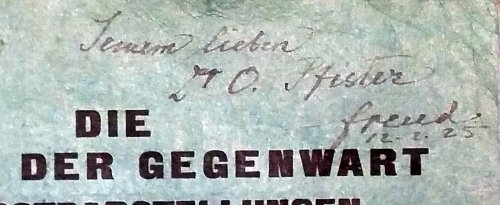 Seinem lieben
Dr O. Pfister
freud
12. 2. 25
DIE
DER GEGENWART
SELBSTDARSTELLUNGEN